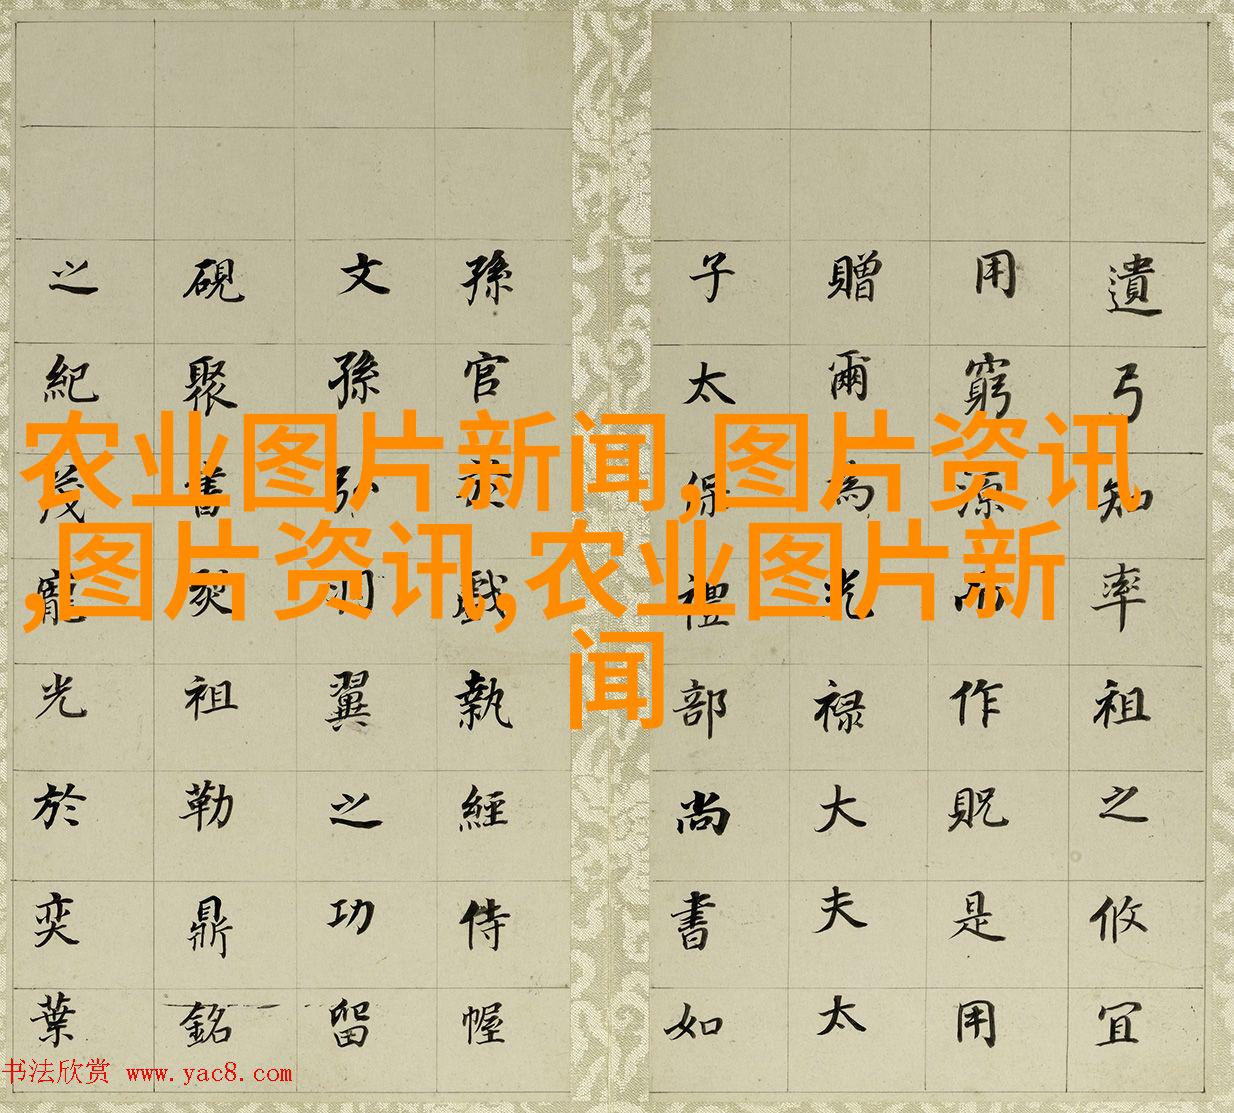 遺弓知率祖之攸宜
用窮源而作貺是用
贈爾為光禄大夫太
子太保禮部尚書如
孫官於戲執經侍幄
文孫翼之功留
硯聚舊祖勒鼎銘
之紀茂寵光於奕葉
农业图片新闻,图片资讯
,图片资讯,农业图片新
闻
书法欣赏 www.yac8.com